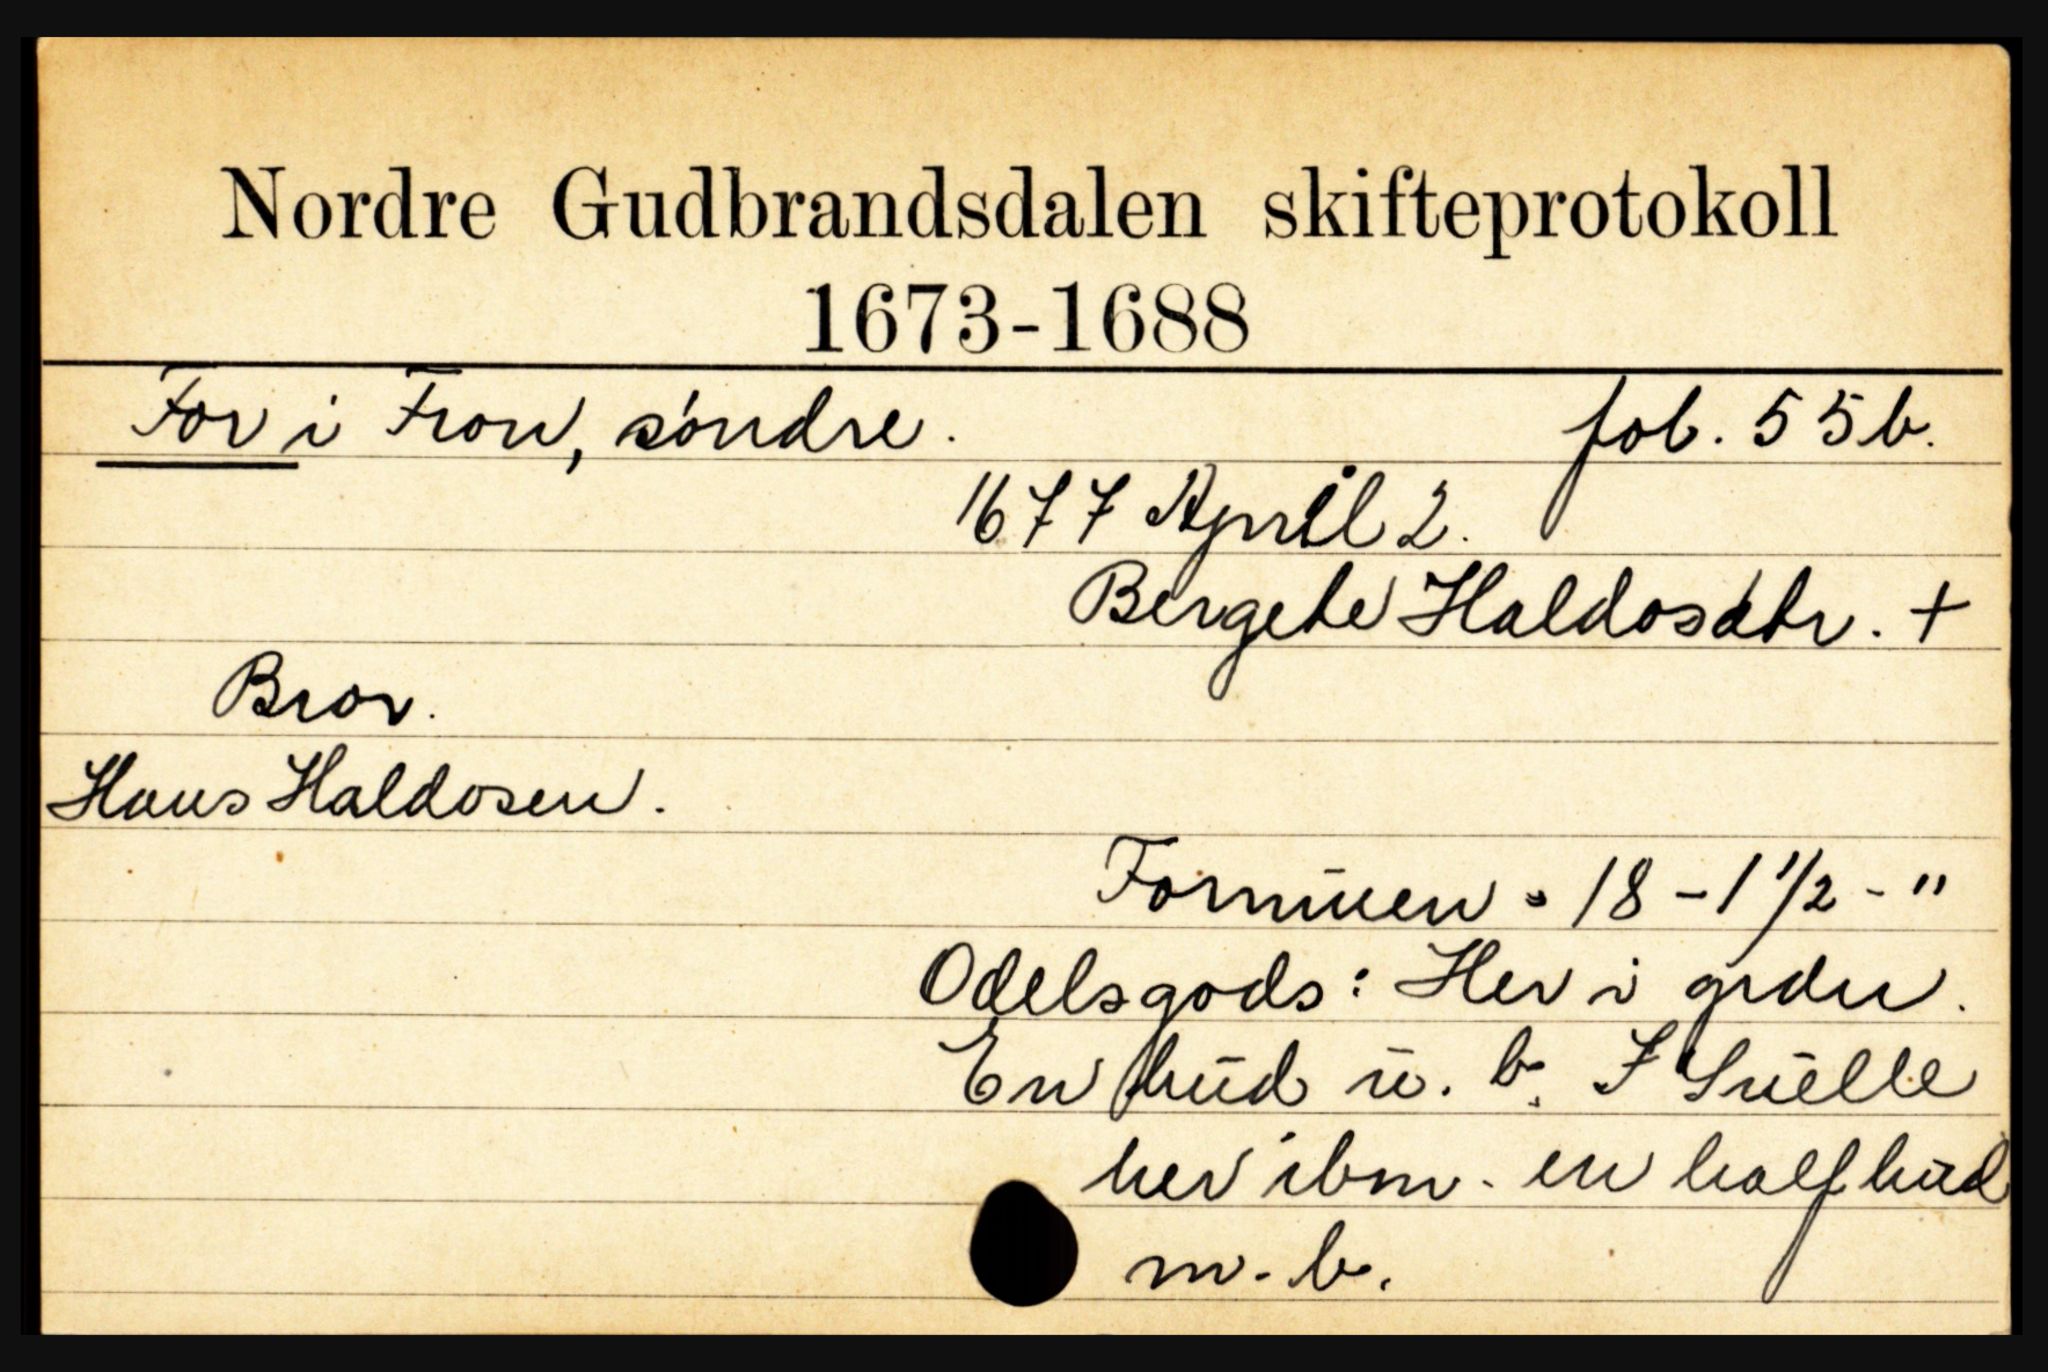 Nordre Gudbrandsdalen skifteprotokoll
1673-1688
For i Fron, söndre.
fol. 55b.
1677 April 2.
Bergete Haldosdtr. +
Bror.
Hans Haldosen.
Formuen. 18 - 1 1/2 - "
Odelsgods: Her i grdn.
En hud u. b. I
her ibm. en half hud
m. b.